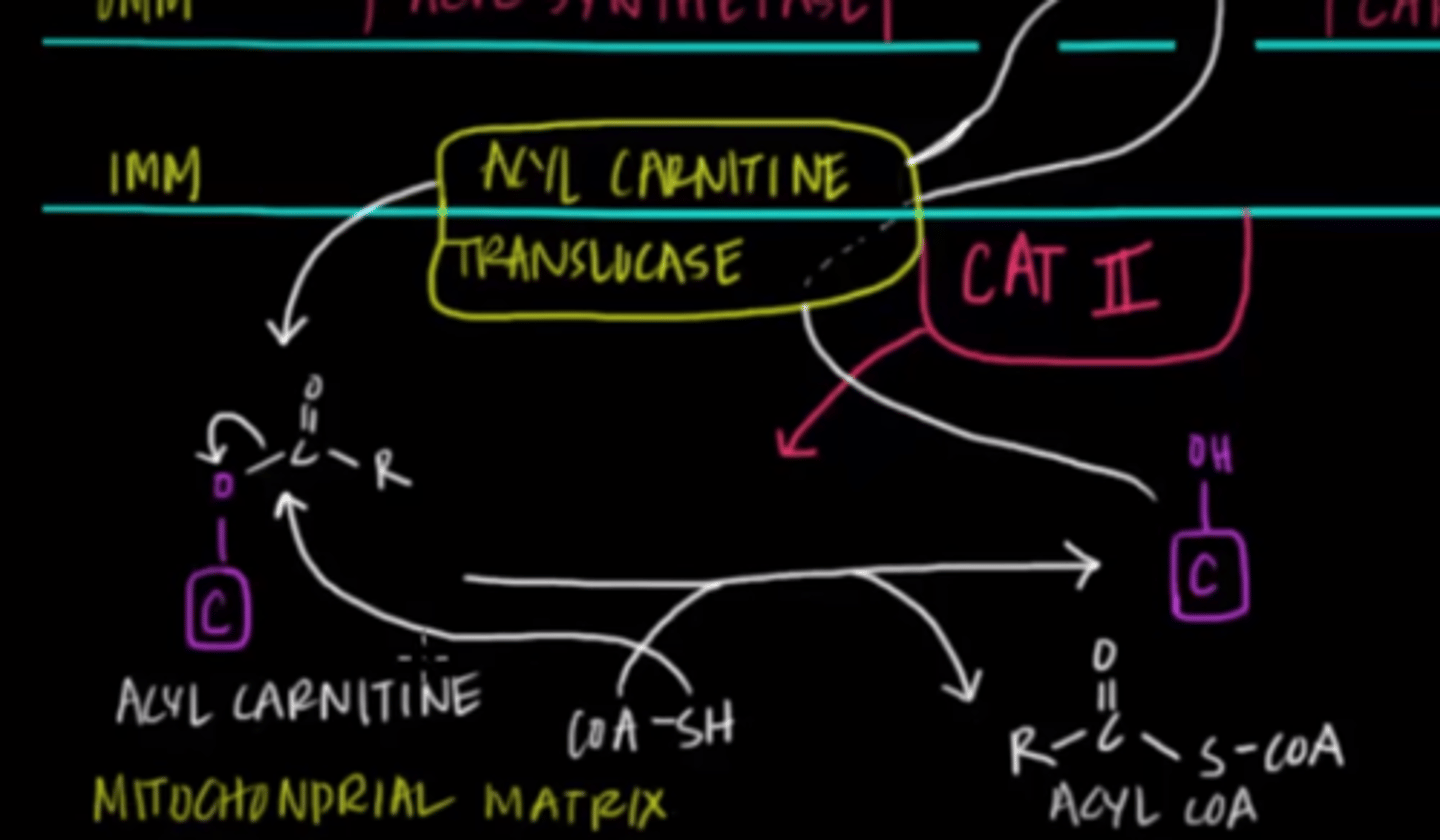 OMM
ACYL SYNTHETASE
CAT
IMM
ACYL CARNITINE
TRANSLUCASE
CAT II
O
C
R
O
C
OH
C
ACYL CARNITINE
COA-SH
O
R C S-COA
ACYL COA
MITOCHONDRIAL MATRIX